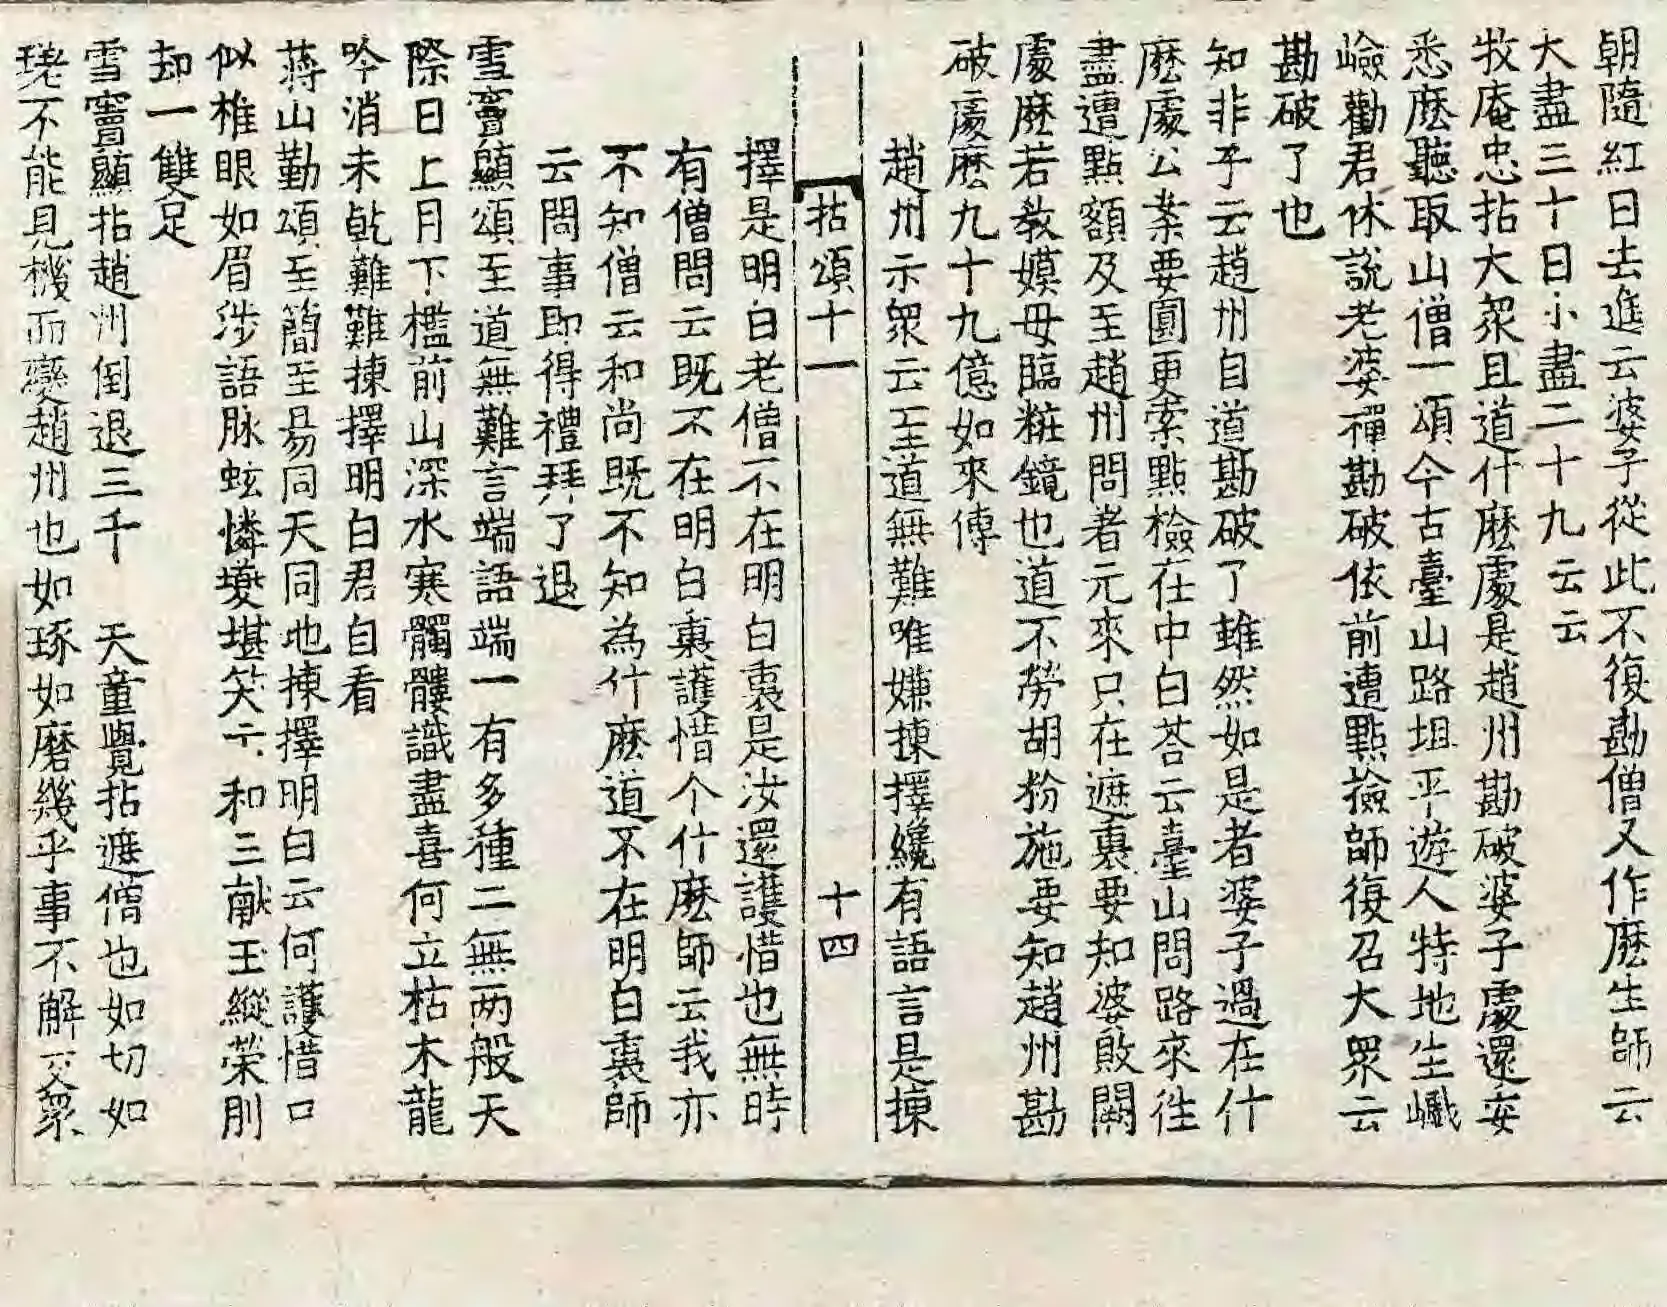 朝隨紅日去進云婆子從此不復勘僧又作麽生師云
大盡三十日小盡二十九云云
牧庵忠拈大衆且道什麽處是趙州勘破婆子處還委
悉麽聽取山僧一頌今古臺山路坦平遊人特地生巇
嶮勸君休說老婆禪勘破依前遭點撿師復召大衆云
勘破了也
知非子云趙州自道勘破了雖然如是者婆子過在什
麽處公案要圓更索點檢在中白荅云臺山問路來往
盡遭點額及至趙州問者元來只在遮裏要知婆敗闕
處麽若教嫫母臨粧鏡也道不勞胡粉施要知趙州勘
破處麽九十九億如來傳
趙州示衆云至道無難唯嫌揀擇纔有語言是揀
拈頌十一 十四
擇是明白老僧不在明白裏是汝還護惜也無時
有僧問云既不在明白裏護惜个什麽師云我亦
不知僧云和尚既不知為什麽道不在明白裏師
云問事即得禮拜了退
雪竇顯頌至道無難言端語端一有多種二無兩般天
際日上月下檻前山深水寒髑髏識盡喜何立枯木龍
吟消未乾難難揀擇明白君自看
蔣山勤頌至簡至昜同天同地揀擇明白云何護惜口
似椎眼如眉涉語脉蚿憐夔堪笑卞和三獻玉縱榮刖
却一雙足
雪竇顯拈趙州倒退三千 天童覺拈遮僧也如切如
磋不能見機而變趙州也如琢如磨幾乎事不解交衆